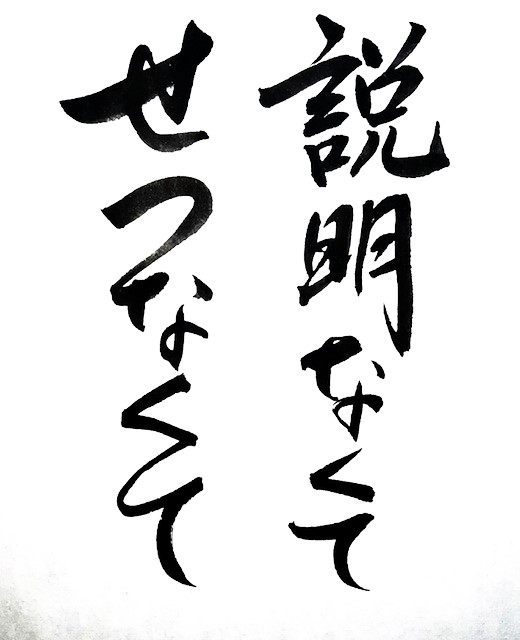 説明なくて
せつなくて